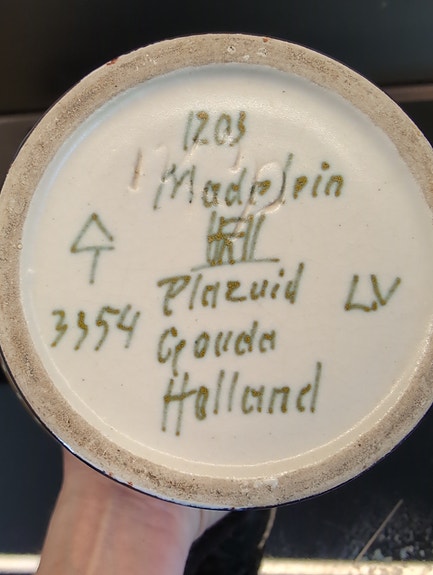 1203
Madelein
Plazuid
LV
3354
Gouda
Holland